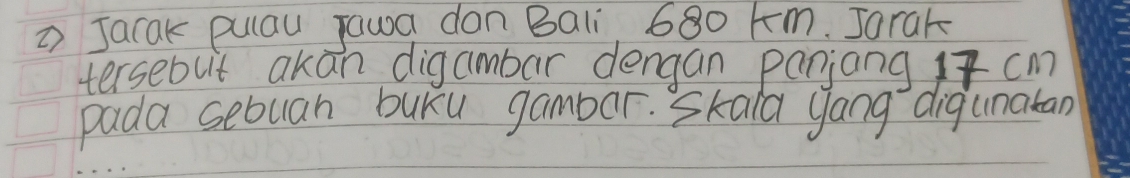 2) Jarak pulau Jawa dan Bali 680 km. Jarak
tersebut akan digambar dengan panjang 17 cm
pada sebuah buku gambar. Skala yang digunakan
....